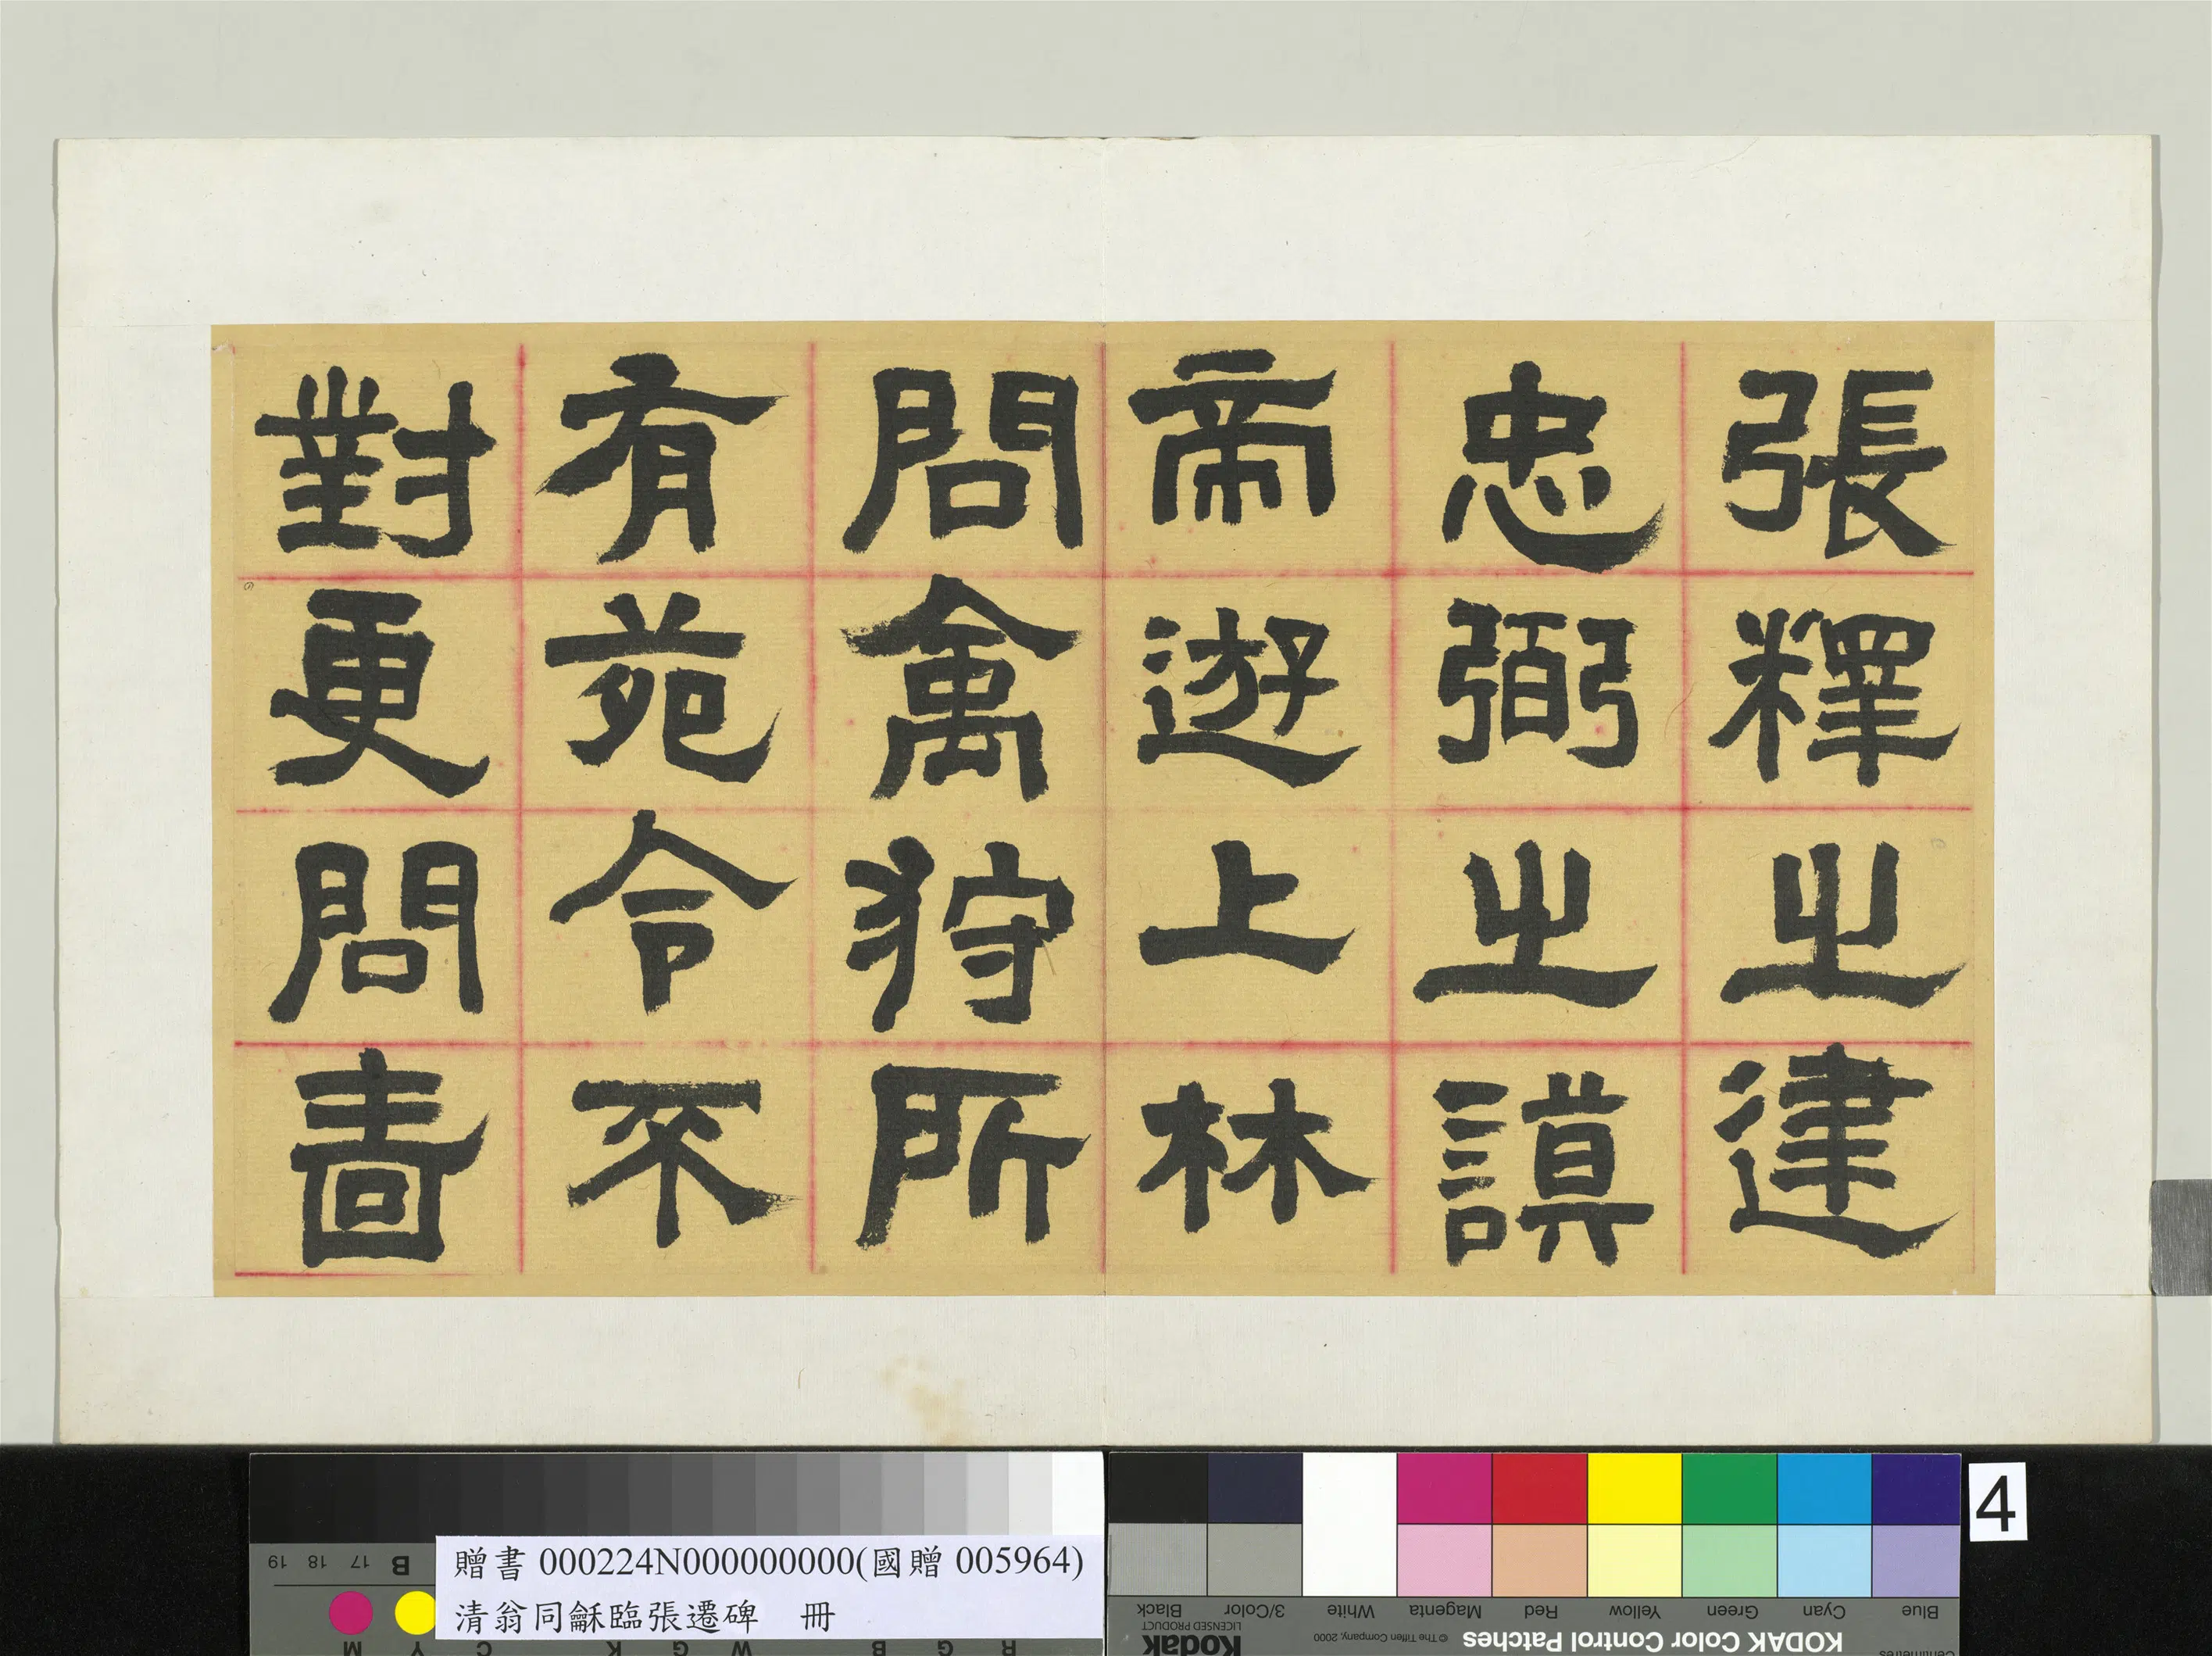 張釋之建
忠弼之謨
帝遊上林
問禽狩所
有苑令不
對更問嗇
4
贈書 000224N000000000(國贈 005964)
清翁同龢臨張遷碑 冊
19 18 17 B
M Y C K G W G B G R
Black 3/Color White Magenta Red Yellow Green Cyan Blue
Kodak
LICENSED PRODUCT
© The Tiffen Company, 2000
KODAK Color Control Patches
Centimetres